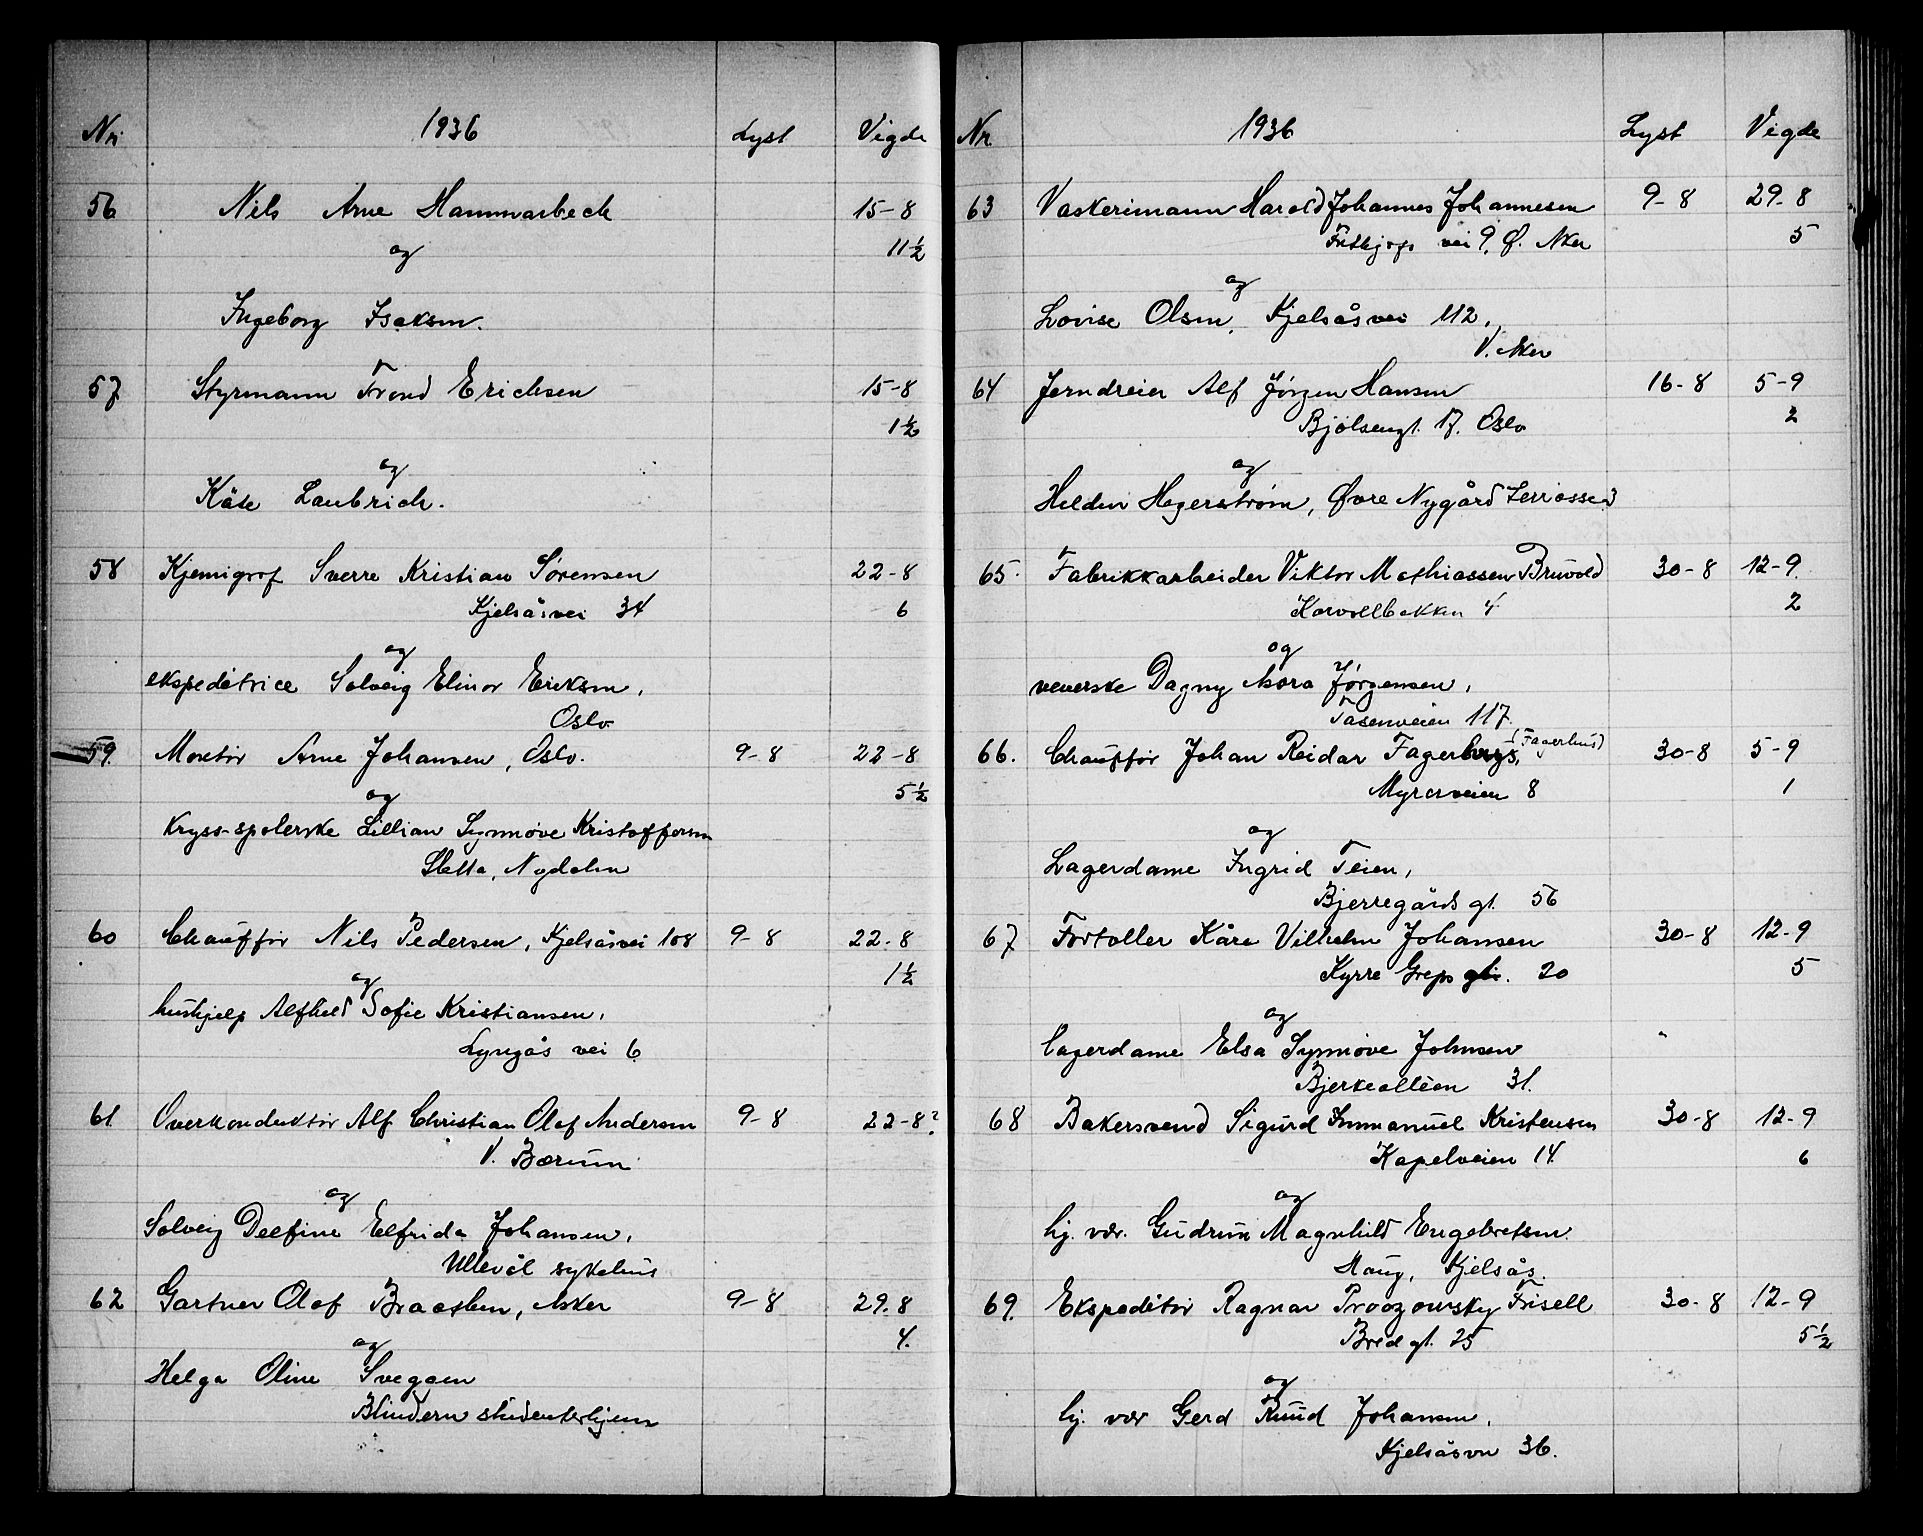 Nr. 1936 Lyst Vigde
56 Nils Arne Hammarbeck 15-8
og 11½
Ingeborg Isaksen.
57 Styrmann Trond Erichsen 15-8
1½
og
Käte Laubrich.
58 Kjemigraf Sverre Kristian Sørensen 22-8
Kjelsåsvei 34 6
og
ekspeditrice Solveig Elinor Eriksen,
Oslo
59. Montør Arne Johansen, Oslo. 9-8 22-8
og 5½
Kryss-spolerske Lillian Synnøve Kristoffersen
Sletta, Nydalen
60 Chauffør Nils Pedersen, Kjelsåsvei 108 9-8 22-8
1½
og
hushjelp Alfhild Sofie Kristiansen,
Lyngås vei 6
61 Overkonduktør Alf Christian Olaf Andersen 9-8 22-8?
V. Bærum
og
Solveig Delfine Elfrida Johansen,
Ullevål sykehus
62 Gartner Olaf Braathen, Asker 9-8 29.8
og 4.
Helga Oline Svegaen
Blindern studenterhjem
Nr. 1936 Lyst Vigde
63 Vaskerimann Harald Johannes Johannesen 9-8 29-8
Fritjofs vei 9. Ø. Aker 5
og
Lovise Olsen, Kjelsåsvei 112,
V. Aker
64 Jerndreier Alf Jørgen Hansen 16-8 5-9
Bjølsengt. 17. Oslo 2
og
Heldin Hagerstrøm, Øvre Nygård Terrasse 3
65. Fabrikkarbeider Viktor Mathiassen Bruvold 30-8 12-9.
Korvollbakken 4 2
og
veverske Dagny Nora Jørgensen,
Tåsenveien 117.
66. Chauffør Johan Reidar Fagerhugs, (Fagerhus) 30-8 5-9
Myrerveien 8 1
og
Lagerdame Ingrid Teien,
Bjerregårds gt. 56
67 Fortoller Kåre Vilhelm Johansen 30-8 12-9
Kyrre Greps gt. 20 5
og
Lagerdame Elsa Synnøve Johnsen
Bjerkealléen 31.
68 Bakersvend Sigurd Immanuel Kristensen 30-8 12-9
Kapelveien 14. 6
og
hj. vær. Gudrun Magnhild Engebretsen.
Haug, Kjelsås.
69. Ekspeditør Ragnar Frisell 30-8 12-9
Bred gt. 25 5½
og
hj. vær Gerd Ruud Johansen,
Kjelsåsvn 36.